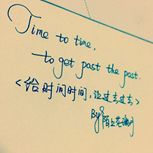 Time to time,
to get past the past.
<给时间时间,让过去过去>
By